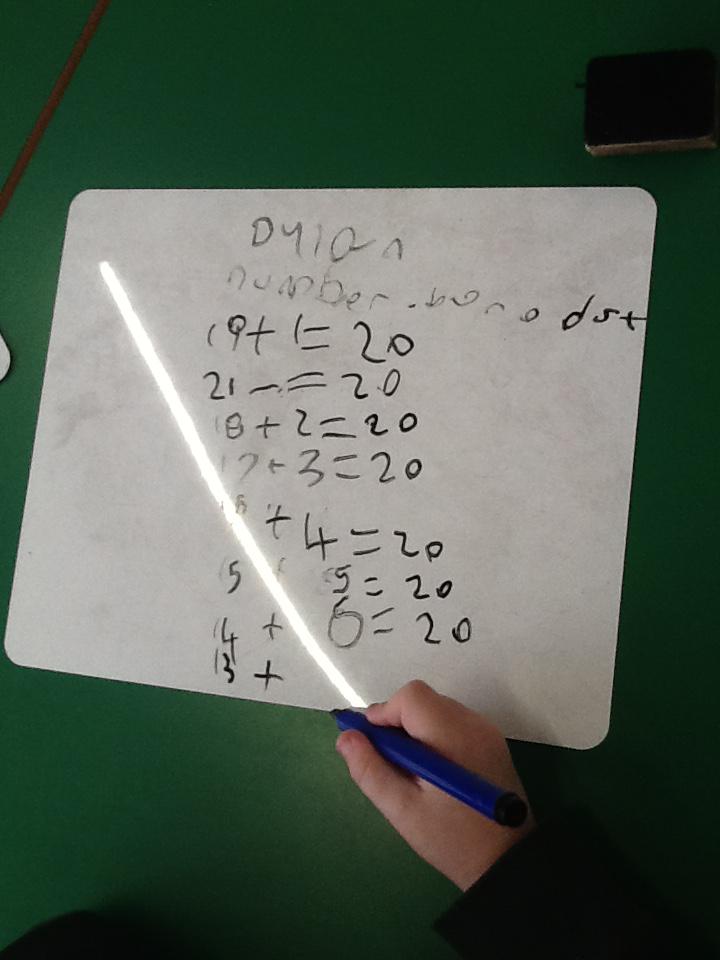 Dylan
number
19+1=20
21-=20
18+2=20
17+3=20
+4=20
15 5=20
14+6=20
13+